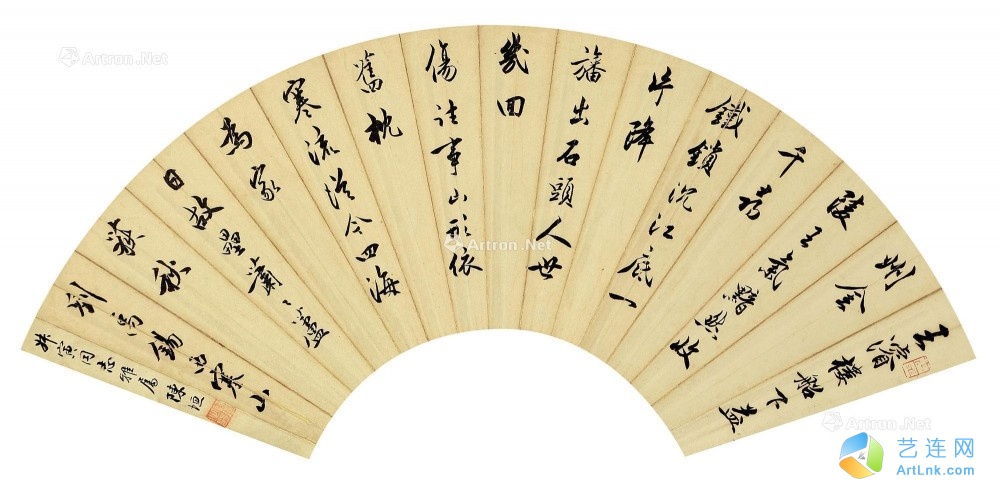 王濬樓船下益
州金
陵王氣黯然收
千尋
鐵鎖沉江底一
片降
旛出石頭人世
幾回
傷往事山形依
舊枕
寒流從今四海
為家
日故壘蕭〻蘆
荻秋
劉禹錫西塞山
寅同志雅屬 陳垣
Artron.Net
Artron.Net
Artron.Net
Artron.Net
艺连网
ArtLnk.com